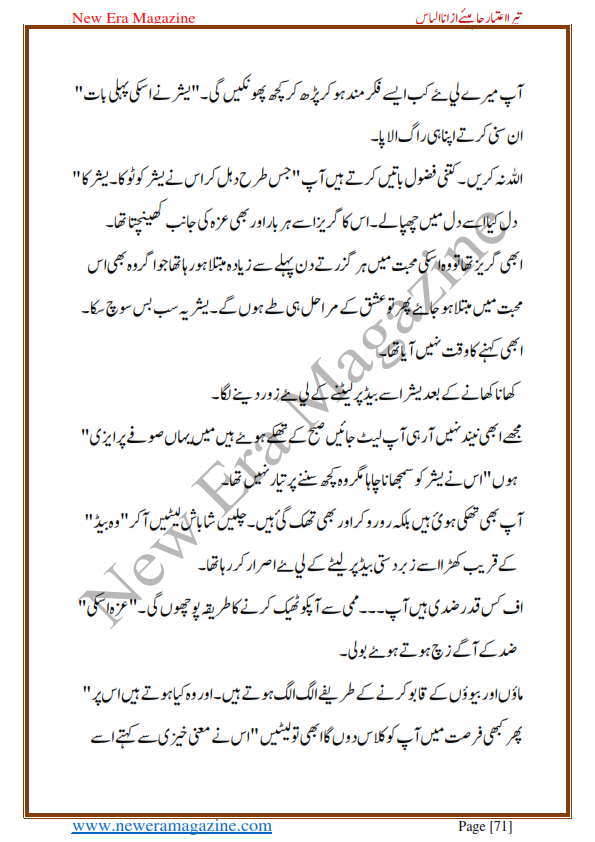 New Era Magazine تیرا اعتبار چاہئے از انا الیاس
آپ میرے لیۓ کب ایسے فکر مند ہو کر پڑھ کر کچھ پھونکیں گی۔"یشر نے اسکی پہلی بات"
ان سنی کرتے اپنا ہی راگ الاپا۔
اللہ نہ کریں۔ کتنی فضول باتیں کرتے ہیں آپ"جس طرح دہل کر اس نے یشر کو ٹوکا۔یشر کا"
دل کیا اسے دل میں چھپا لے۔ اس کا گریز اسے ہر بار اور بھی عزہ کی جانب کھینچتا تھا۔
ابھی گریز تھا تو وہ اسکی محبت میں ہر گزرتے دن پہلے سے زیادہ مبتلا ہو رہا تھا جو اگر وہ بھی اس
محبت میں مبتلا ہو جاۓ پھر تو عشق کے مراحل ہی طے ہوں گے۔ یشر یہ سب بس سوچ سکا۔
ابھی کہنے کا وقت نہیں آیا تھا۔
کھانا کھانے کے بعد یشر اسے بیڈ پر لیٹنے کے لیۓ زور دینے لگا۔
مجھے ابھی نیند نہیں آرہی آپ لیٹ جائیں صبح کے تھکے ہوۓ ہیں میں یہاں صوفے پر ایزی"
ہوں"اس نے یشر کو سمجھانا چاہا مگر وہ کچھ سننے پر تیار نہیں تھا۔
آپ بھی تھکی ہوئ ہیں بلکہ رو رو کر اور بھی تھک گئ ہیں۔ چلیں شاباش لیٹیں آکر"وہ بیڈ"
کے قریب کھڑا اسے زبردستی بیڈ پر لیٹے کے لیۓ اصرار کر رہا تھا۔
اف کس قدر ضدی ہیں آپ۔۔۔ ممی سے آپکو ٹھیک کرنے کا طریقہ پوچھوں گی۔"عزہ اسکی"
ضد کے آگے زچ ہوتے ہوۓ بولی۔
ماؤں اور بیوؤں کے قابو کرنے کے طریقے الگ الگ ہوتے ہیں۔ اور وہ کیا ہوتے ہیں اس پر"
پھر کبھی فرصت میں آپ کو کلاس دوں گا ابھی تو لیٹیں"اس نے معنی خیزی سے کہتے اسے
www.neweramagazine.com Page [71]
New Era Magazine